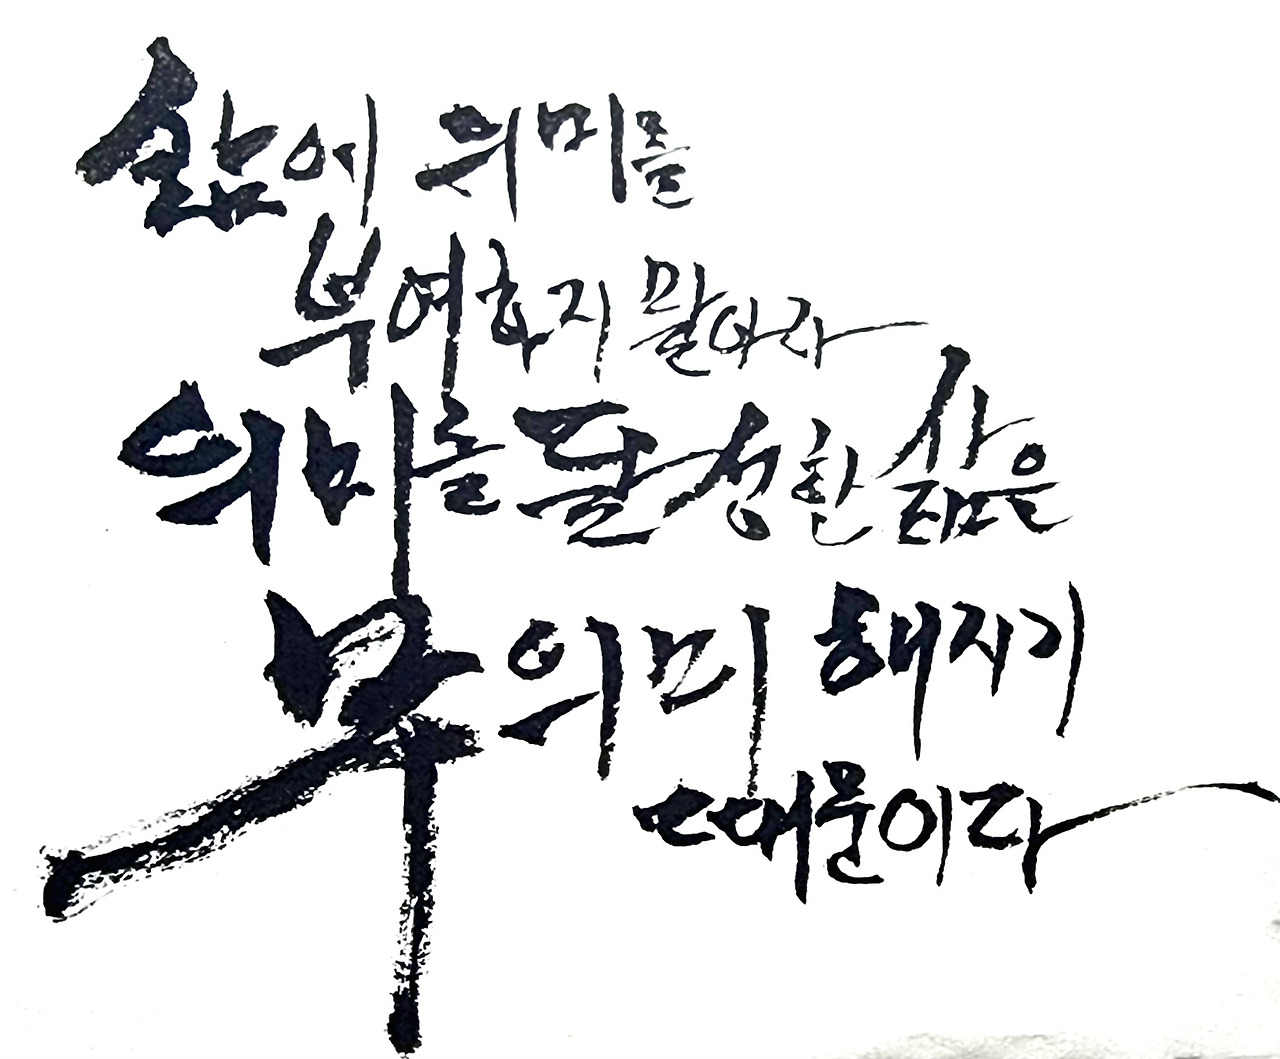 삶에 의미를
부여하지 말아라
의미를 달성한 삶은
무의미 해지기
때문이다